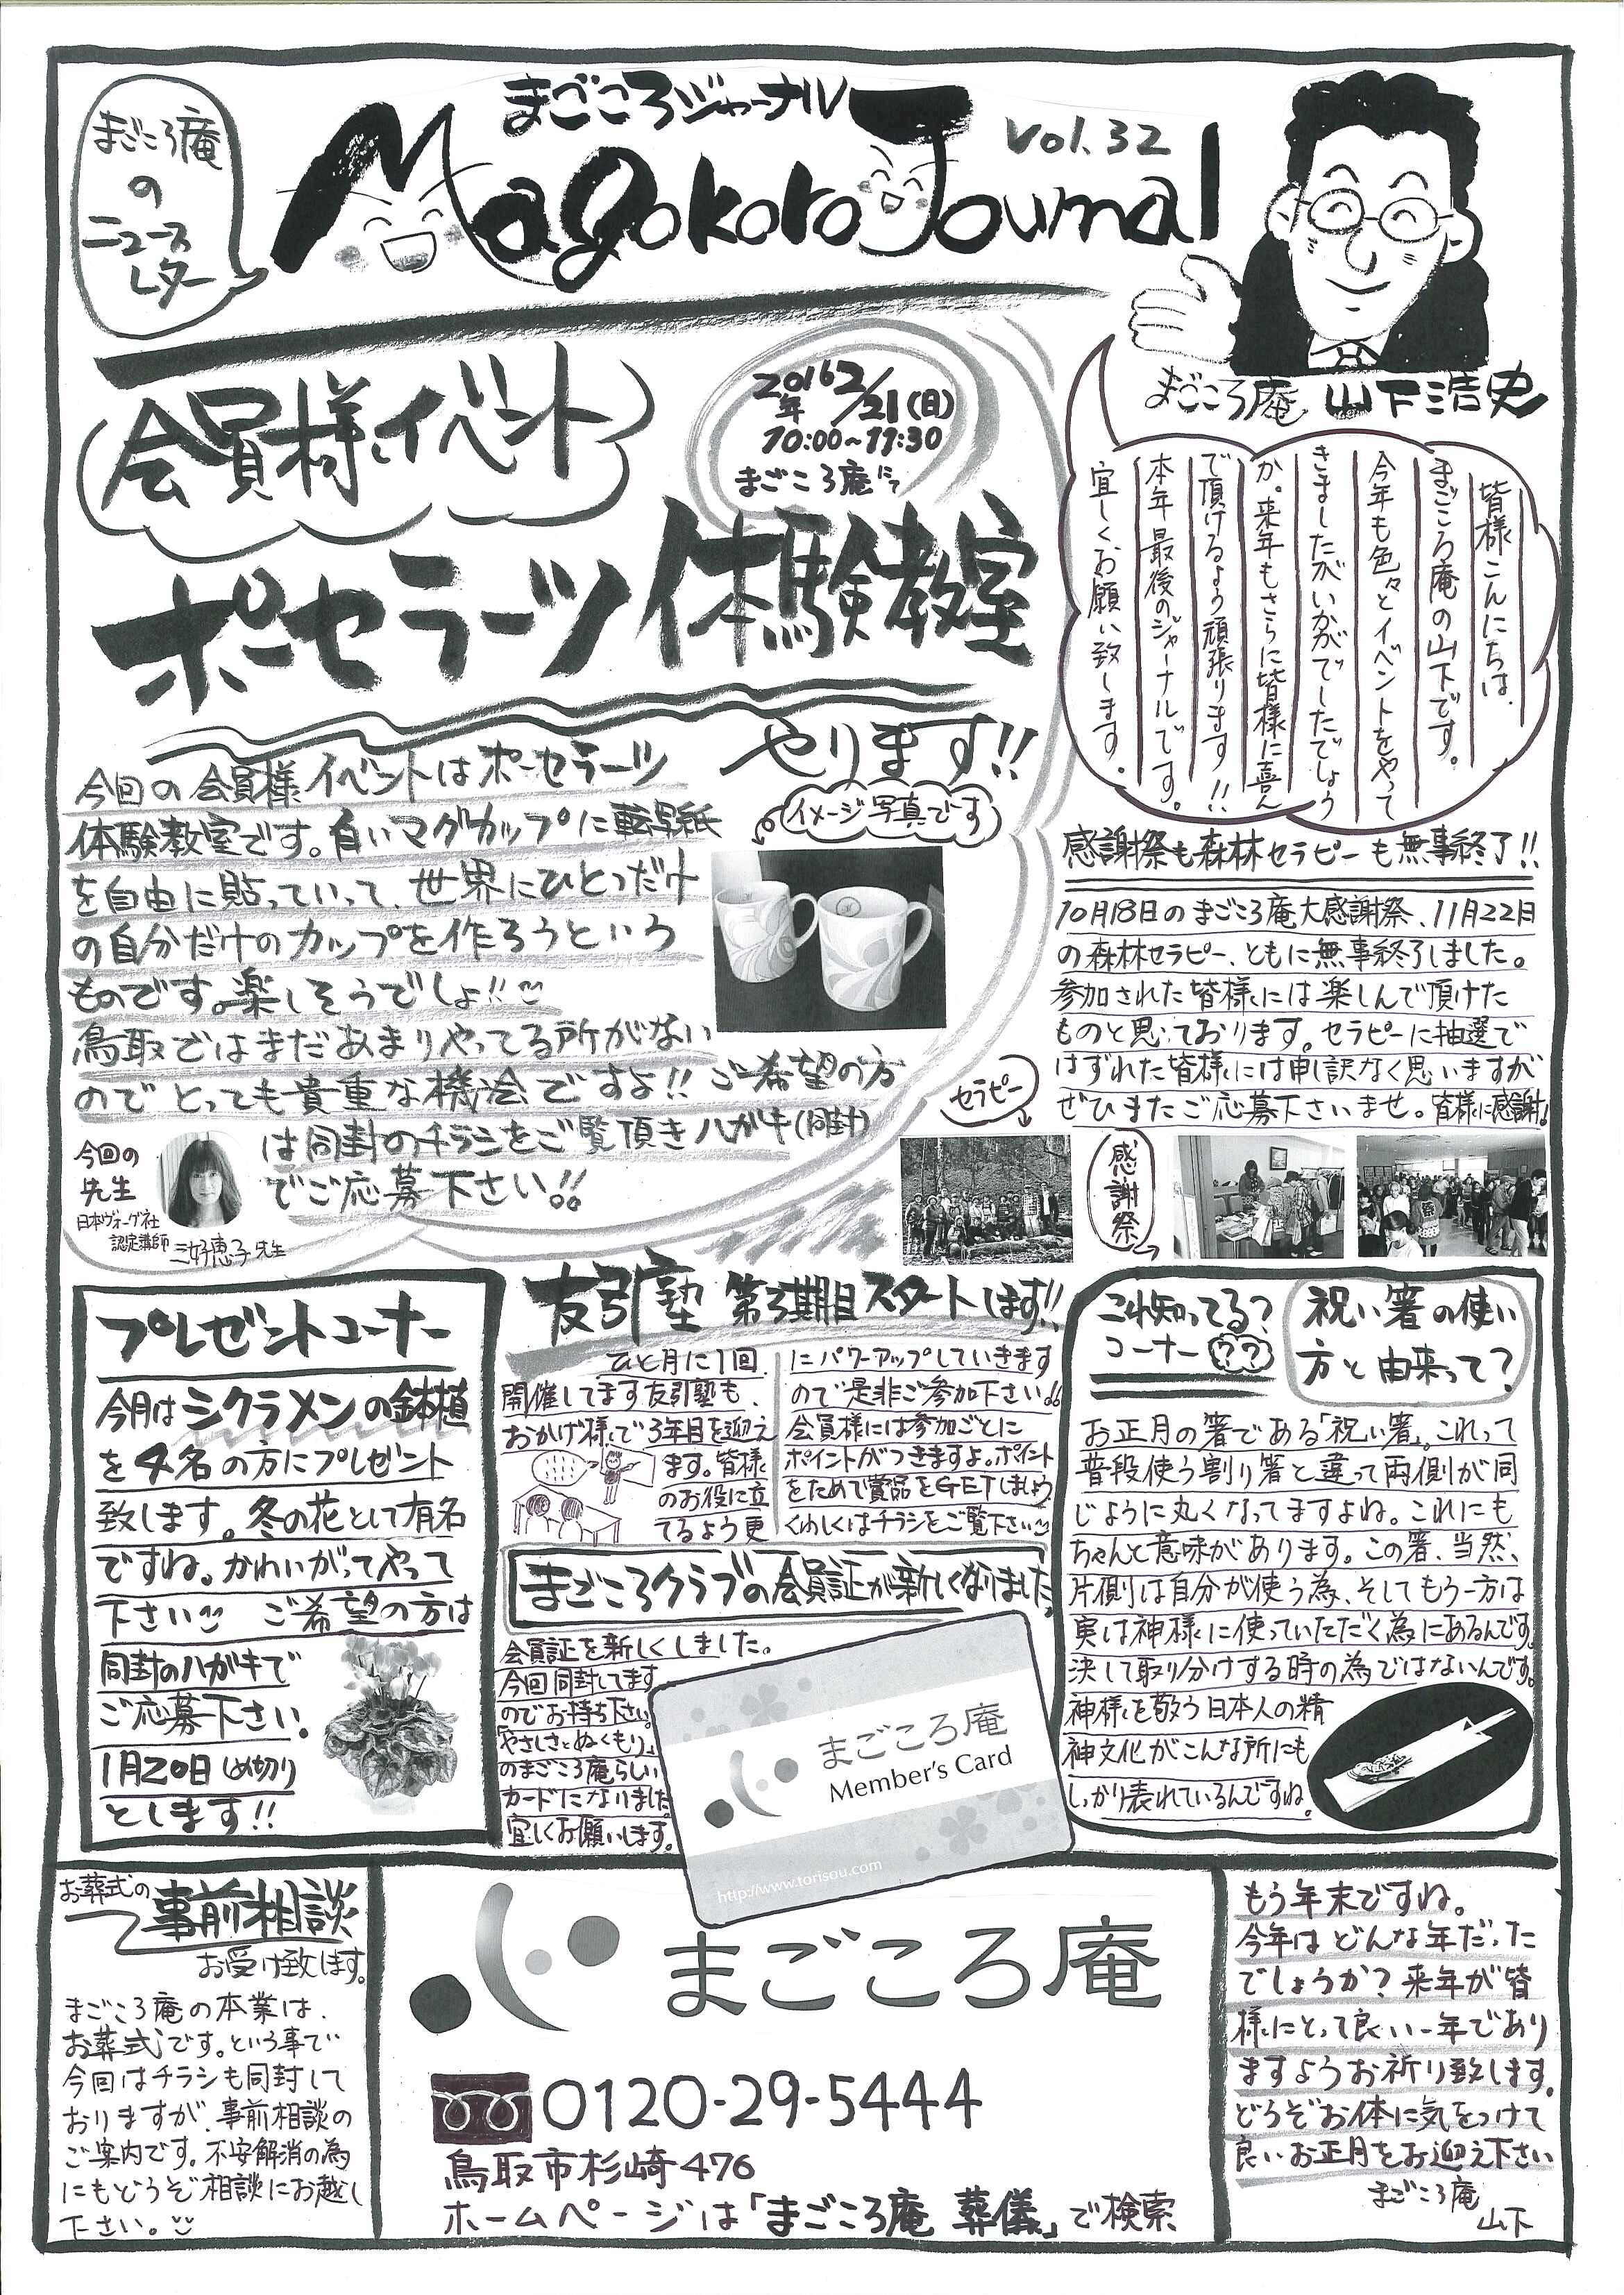 まごころ庵
の
ニュース
レター
まごころジャーナル
Magokoro Journal
Vol.32
まごころ庵 山下浩史
会員様イベント
2016年2/21(日)
10:00~11:30
まごころ庵にて
ポーセラーツ体験教室
やります!!
皆様こんにちは。
まごころ庵の山下です。
今年も色々とイベントをやって
きましたがいかがでしたでしょう
か。来年もさらに皆様に喜ん
で頂けるよう頑張ります!!
本年最後のジャーナルです。
宜しくお願い致します。
今回の会員様イベントはポーセラーツ
体験教室です。白いマグカップに転写紙
を自由に貼っていって、世界にひとつだけ
の自分だけのカップを作ろうという
ものです。楽しそうでしょ!!
鳥取ではまだあまりやってる所がない
のでとっても貴重な機会ですよ!! ご希望の方
は同封のチラシをご覧頂きハガキ(同封)
でご応募下さい!!
イメージ写真です
今回の
先生
日本ヴォーグ社
認定講師
三好恵子先生
感謝祭も森林セラピーも無事終了!!
10月18日のまごころ庵大感謝祭、11月22日
の森林セラピー、ともに無事終了しました。
参加された皆様には楽しんで頂けた
ものと思っております。セラピーに抽選で
はずれた皆様には申し訳なく思いますが
ぜひまたご応募下さいませ。皆様に感謝!
セラピー
感謝祭
プレゼントコーナー
今月はシクラメンの鉢植
を4名の方にプレゼント
致します。冬の花として有名
ですね。かわいがってやって
下さい ご希望の方は
同封のハガキで
ご応募下さい。
1月20日〆切り
とします!!
友引塾 第3期目スタートします!!
ひと月に1回
開催してます友引塾も、
おかげ様で3年目を迎え
ます。皆様
のお役に立
てるよう更
にパワーアップしていきます
ので是非ご参加下さい!!
会員様には参加ごとに
ポイントがつきますよ。ポイント
をためて賞品をGETしましょう
くわしくはチラシをご覧下さい
まごころクラブの会員証が新しくなりました
会員証を新しくしました。
今回同封してます
のでお持ち下さい。
「やさしさとぬくもり」
のまごころ庵らしい
カードになりました
宜しくお願いします。
まごころ庵
Member's Card
http://www.torisou.com
これ知ってる?
コーナー??
祝い箸の使い
方と由来って?
お正月の箸である「祝い箸」。これって
普段使う割り箸と違って両側が同
じように丸くなってますよね。これにも
ちゃんと意味があります。この箸、当然、
片側は自分が使う為、そしてもう一方は
実は神様に使っていただく為にあるんです。
決して取り分けする時の為ではないんです。
神様を敬う日本人の精
神文化がこんな所にも
しっかり表れているんですね。
お葬式の
事前相談
お受け致します。
まごころ庵の本業は、
お葬式です。という事で
今回はチラシも同封して
おりますが、事前相談の
ご案内です。不安解消の為
にもどうぞ相談にお越し
下さい。
まごころ庵
0120-29-5444
鳥取市杉崎476
ホームページは「まごころ庵 葬儀」で検索
もう年末ですね。
今年はどんな年だった
でしょうか?来年が皆
様にとって良い一年であり
ますようお祈り致します。
どうぞお体に気をつけて
良いお正月をお迎え下さい
まごころ庵
山下